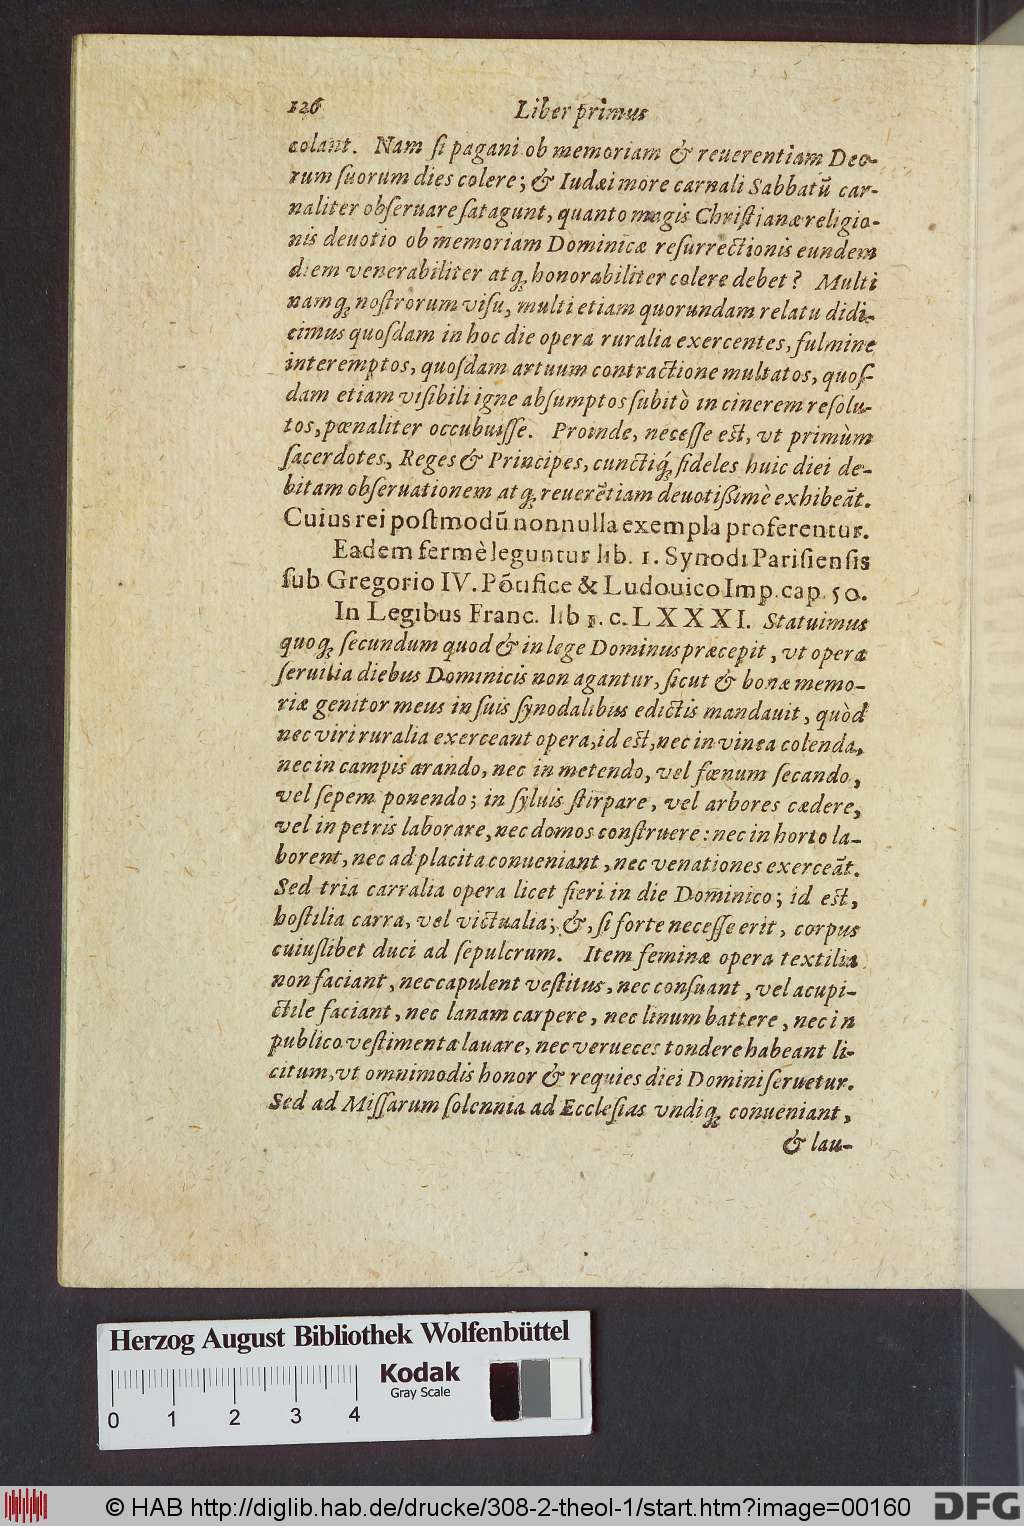 126 Liber primus
colant. Nam ſi pagani ob memoriam & reuerentiam Deo-
rum ſuorum dies colere; & Iudæi more carnali Sabbatū car-
naliter obſeruare ſatagunt, quanto magis Chriſtianæ religio-
nis deuotio ob memoriam Dominicæ reſurrectionis eundem
diem venerabiliter atq; honorabiliter colere debet? Multi
namq; noſtrorum viſu, multi etiam quorundam relatu didi-
cimus quoſdam in hoc die opera ruralia exercentes, fulmine
interemptos, quoſdam artuum contractione multatos, quoſ-
dam etiam viſibili igne abſumptos ſubitò in cinerem reſolu-
tos, pœnaliter occubuiſſe. Proinde, neceſſe eſt, vt primùm
ſacerdotes, Reges & Principes, cunctiq́; fideles huic diei de-
bitam obſeruationem atq; reuerētiam deuotißimè exhibeāt.
Cuius rei poſtmodū nonnulla exempla proferentur.
Eadem fermè leguntur lib. 1. Synodi Pariſienſis
ſub Gregorio IV. Pōtifice & Ludouico Imp. cap. 50.
In Legibus Franc. lib 1. c. LXXXI. Statuimus
quoq; ſecundum quod & in lege Dominus præcepit, vt opera
ſeruilia diebus Dominicis non agantur, ſicut & bonæ memo-
riæ genitor meus in ſuis ſynodalibus edictis mandauit, quòd
nec viri ruralia exerceant opera, id eſt, nec in vinea colenda,
nec in campis arando, nec in metendo, vel fœnum ſecando,
vel ſepem ponendo; in ſyluis ſtirpare, vel arbores cædere,
vel in petris laborare, nec domos conſtruere: nec in horto la-
borent, nec ad placita conueniant, nec venationes exerceāt.
Sed tria carralia opera licet fieri in die Dominico; id eſt,
hoſtilia carra, vel victualia; &, ſi forte neceſſe erit, corpus
cuiuſlibet duci ad ſepulcrum. Item feminæ opera textilia
non faciant, nec capulent veſtitus, nec conſuant, vel acupi-
ctile faciant, nec lanam carpere, nec linum battere, nec in
publico veſtimenta lauare, nec verueces tondere habeant li-
citum, vt omnimodis honor & requies diei Domini ſeruetur.
Sed ad Miſſarum ſolennia ad Eccleſias vndiq; conueniant,
& lau-
Herzog August Bibliothek Wolfenbüttel
Kodak
Gray Scale
0 1 2 3 4
© HAB http://diglib.hab.de/drucke/308-2-theol-1/start.htm?image=00160 DFG